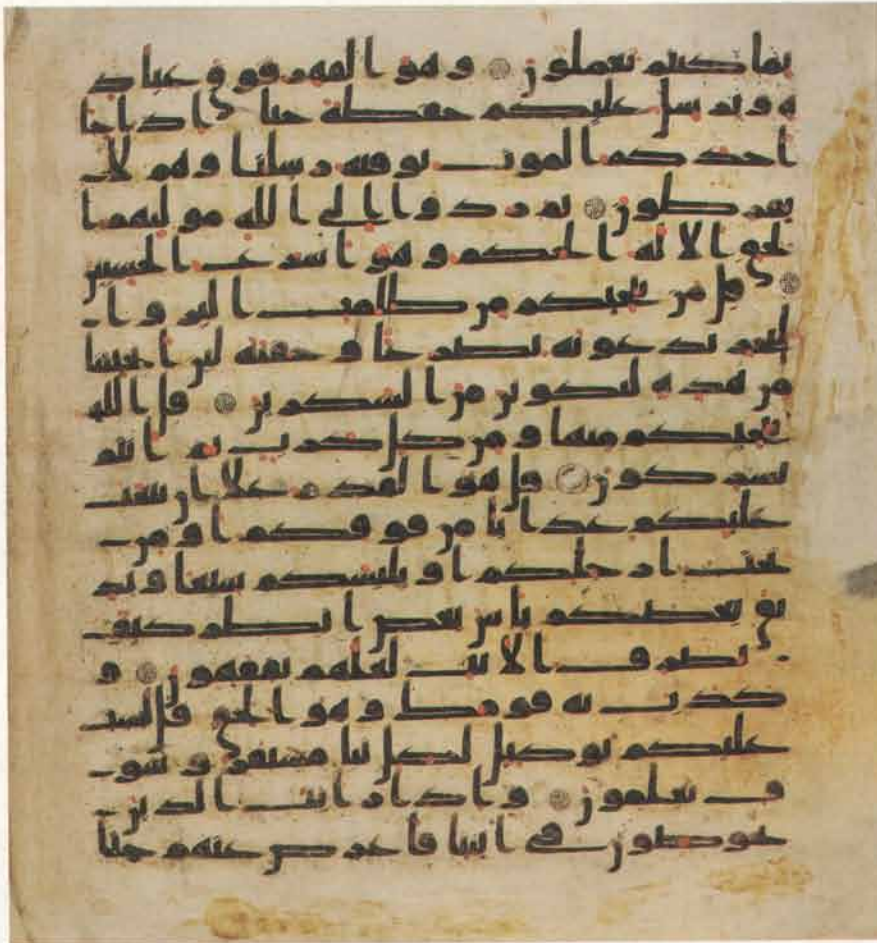 بما كنتم تعملون وهو القهر فوق عباد
ه ويرسل عليكم حفظة حتى اذا جا
احدكم الموت توفته رسلنا وهم لا
يفرطون ثم ردوا الى الله موليهم ا
لحق الا له الحكم وهو اسرع الحسبين
قل من ينجيكم من ظلمت البر وا
لبحر تدعونه تضرعا وخفية لين انجيتنا
من هذه لنكونن من الشكرين قل الله
ينجيكم منها ومن كل كرب ثم انتم
تشركون قل هو القدر على ان يبعث
عليكم عذابا من فوقكم او من
تحت ارجلكم او يلبسكم شيعا ويذ
يق بعضكم باس بعض انظر كيف
نصرف الايت لعلهم يفقهون و
كذب به قومك وهو الحق قل لست
عليكم بوكيل لكل نبا مستقر وسو
ف تعلمون واذا رايت الذين
يخوضون في ايتنا فاعرض عنهم حتى